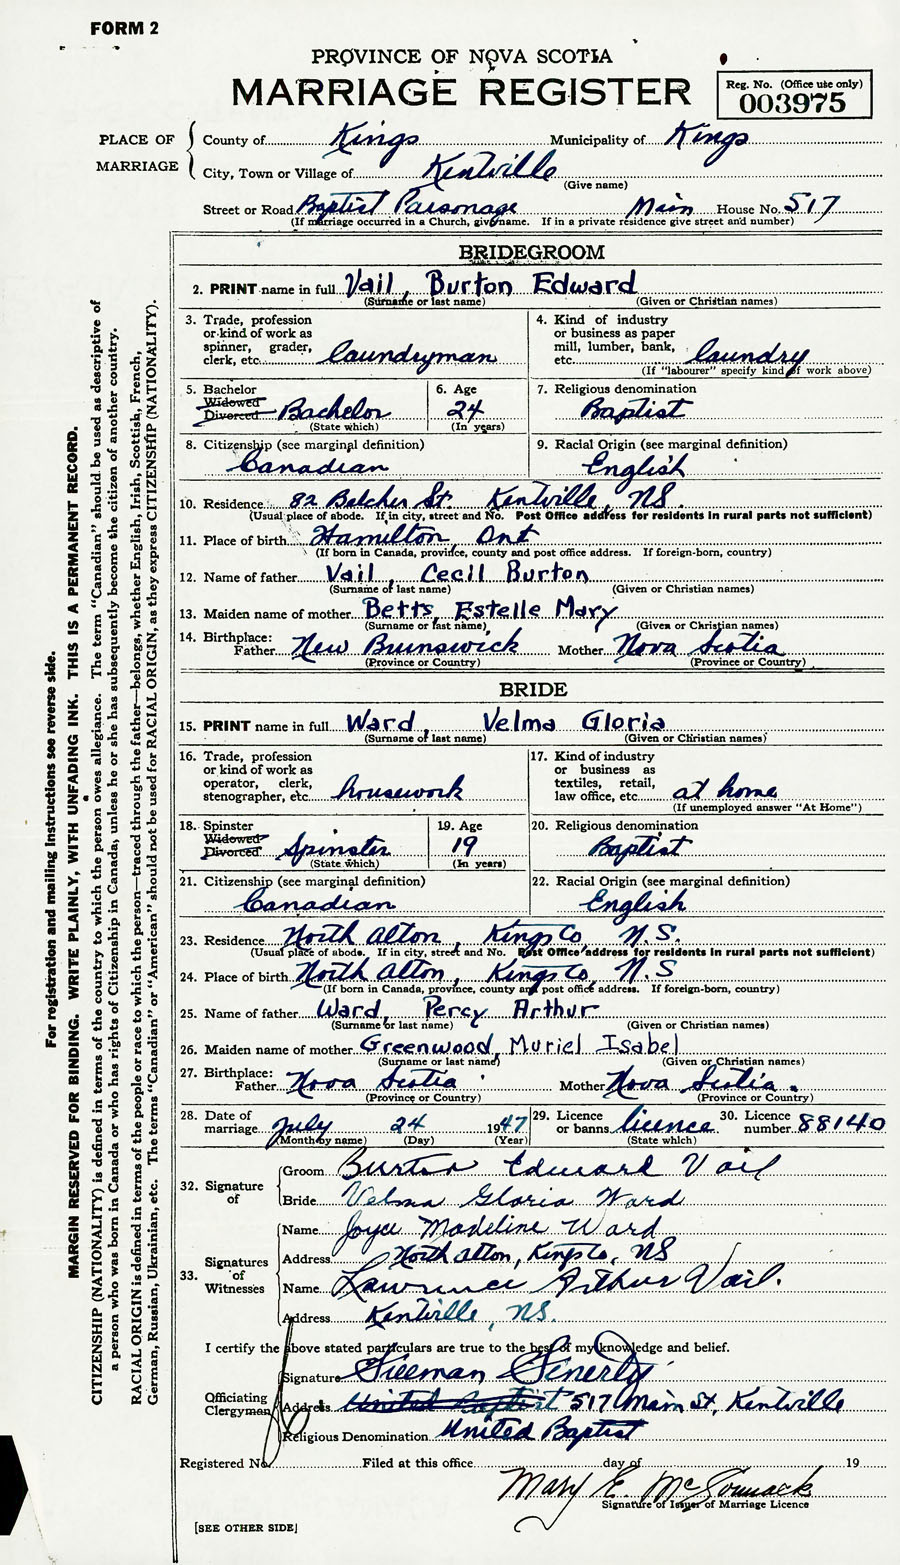 FORM 2
PROVINCE OF NOVA SCOTIA
MARRIAGE REGISTER
Reg. No. (Office use only)
003975
PLACE OF MARRIAGE
County of Kings Municipality of Kings
City, Town or Village of Kentville
(Give name)
Street or Road Baptist Parsonage Main House No. 517
(If marriage occurred in a Church, give name. If in a private residence give street and number)
BRIDEGROOM
2. PRINT name in full Vail, Burton Edward
(Surname or last name) (Given or Christian names)
3. Trade, profession or kind of work as spinner, grader, clerk, etc. Laundryman
4. Kind of industry or business as paper mill, lumber, bank, etc. Laundry
(If "labourer" specify kind of work above)
5. Bachelor Widowed Divorced Bachelor
(State which)
6. Age 24
(In years)
7. Religious denomination
Baptist
8. Citizenship (see marginal definition)
Canadian
9. Racial Origin (see marginal definition)
English
10. Residence 82 Belcher St. Kentville, NS.
(Usual place of abode. If in city, street and No. Post Office address for residents in rural parts not sufficient)
11. Place of birth Hamilton, Ont
(If born in Canada, province, county and post office address. If foreign-born, country)
12. Name of father Vail, Cecil Burton
(Surname or last name) (Given or Christian names)
13. Maiden name of mother Betts, Estelle Mary
(Surname or last name) (Given or Christian names)
14. Birthplace: Father New Brunswick Mother Nova Scotia
(Province or Country) (Province or Country)
BRIDE
15. PRINT name in full Ward, Velma Gloria
(Surname or last name) (Given or Christian names)
16. Trade, profession or kind of work as operator, clerk, stenographer, etc. housework
17. Kind of industry or business as textiles, retail, law office, etc. at home
(If unemployed answer "At Home")
18. Spinster Widowed Divorced Spinster
(State which)
19. Age 19
(In years)
20. Religious denomination
Baptist
21. Citizenship (see marginal definition)
Canadian
22. Racial Origin (see marginal definition)
English
23. Residence North Alton, Kings Co, N.S.
(Usual place of abode. If in city, street and No. Post Office address for residents in rural parts not sufficient)
24. Place of birth North Alton, Kings Co N.S
(If born in Canada, province, county and post office address. If foreign-born, country)
25. Name of father Ward, Percy Arthur
(Surname or last name) (Given or Christian names)
26. Maiden name of mother Greenwood, Muriel Isabel
(Surname or last name) (Given or Christian names)
27. Birthplace: Father Nova Scotia Mother Nova Scotia.
(Province or Country) (Province or Country)
28. Date of marriage July 24 1947
(Month by name) (Day) (Year)
29. Licence or banns licence.
(State which)
30. Licence number 88140
32. Signature of
Groom Burton Edward Vail
Bride Velma Gloria Ward
33. Signatures of Witnesses
Name Joyce Madeline Ward
Address North Alton, Kings Co, NS
Name Lawrence Arthur Vail.
Address Kentville, NS.
I certify the above stated particulars are true to the best of my knowledge and belief.
Officiating Clergyman
Signature Freeman Fenerty
Address United Baptist 517 Main St, Kentville
Religious Denomination United Baptist
Registered No. Filed at this office day of 19
Mary E. McCormack
Signature of Issuer of Marriage Licence
[SEE OTHER SIDE]
For registration and mailing instructions see reverse side.
MARGIN RESERVED FOR BINDING. WRITE PLAINLY, WITH UNFADING INK. THIS IS A PERMANENT RECORD.
CITIZENSHIP (NATIONALITY) is defined in terms of the country to which the person owes allegiance. The term "Canadian" should be used as descriptive of
a person who was born in Canada or who has rights of Citizenship in Canada, unless he or she has subsequently become the citizen of another country.
RACIAL ORIGIN is defined in terms of the people or race to which the person—traced through the father—belongs, whether English, Irish, Scottish, French,
German, Russian, Ukrainian, etc. The terms "Canadian" or "American" should not be used for RACIAL ORIGIN, as they express CITIZENSHIP (NATIONALITY).